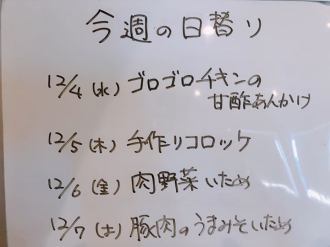 今週の日替り
12/4(水)ゴロゴロチキンの
甘酢あんかけ
12/5(木)手作りコロッケ
12/6(金)肉野菜いため
12/7(土)豚肉のうまみそいため